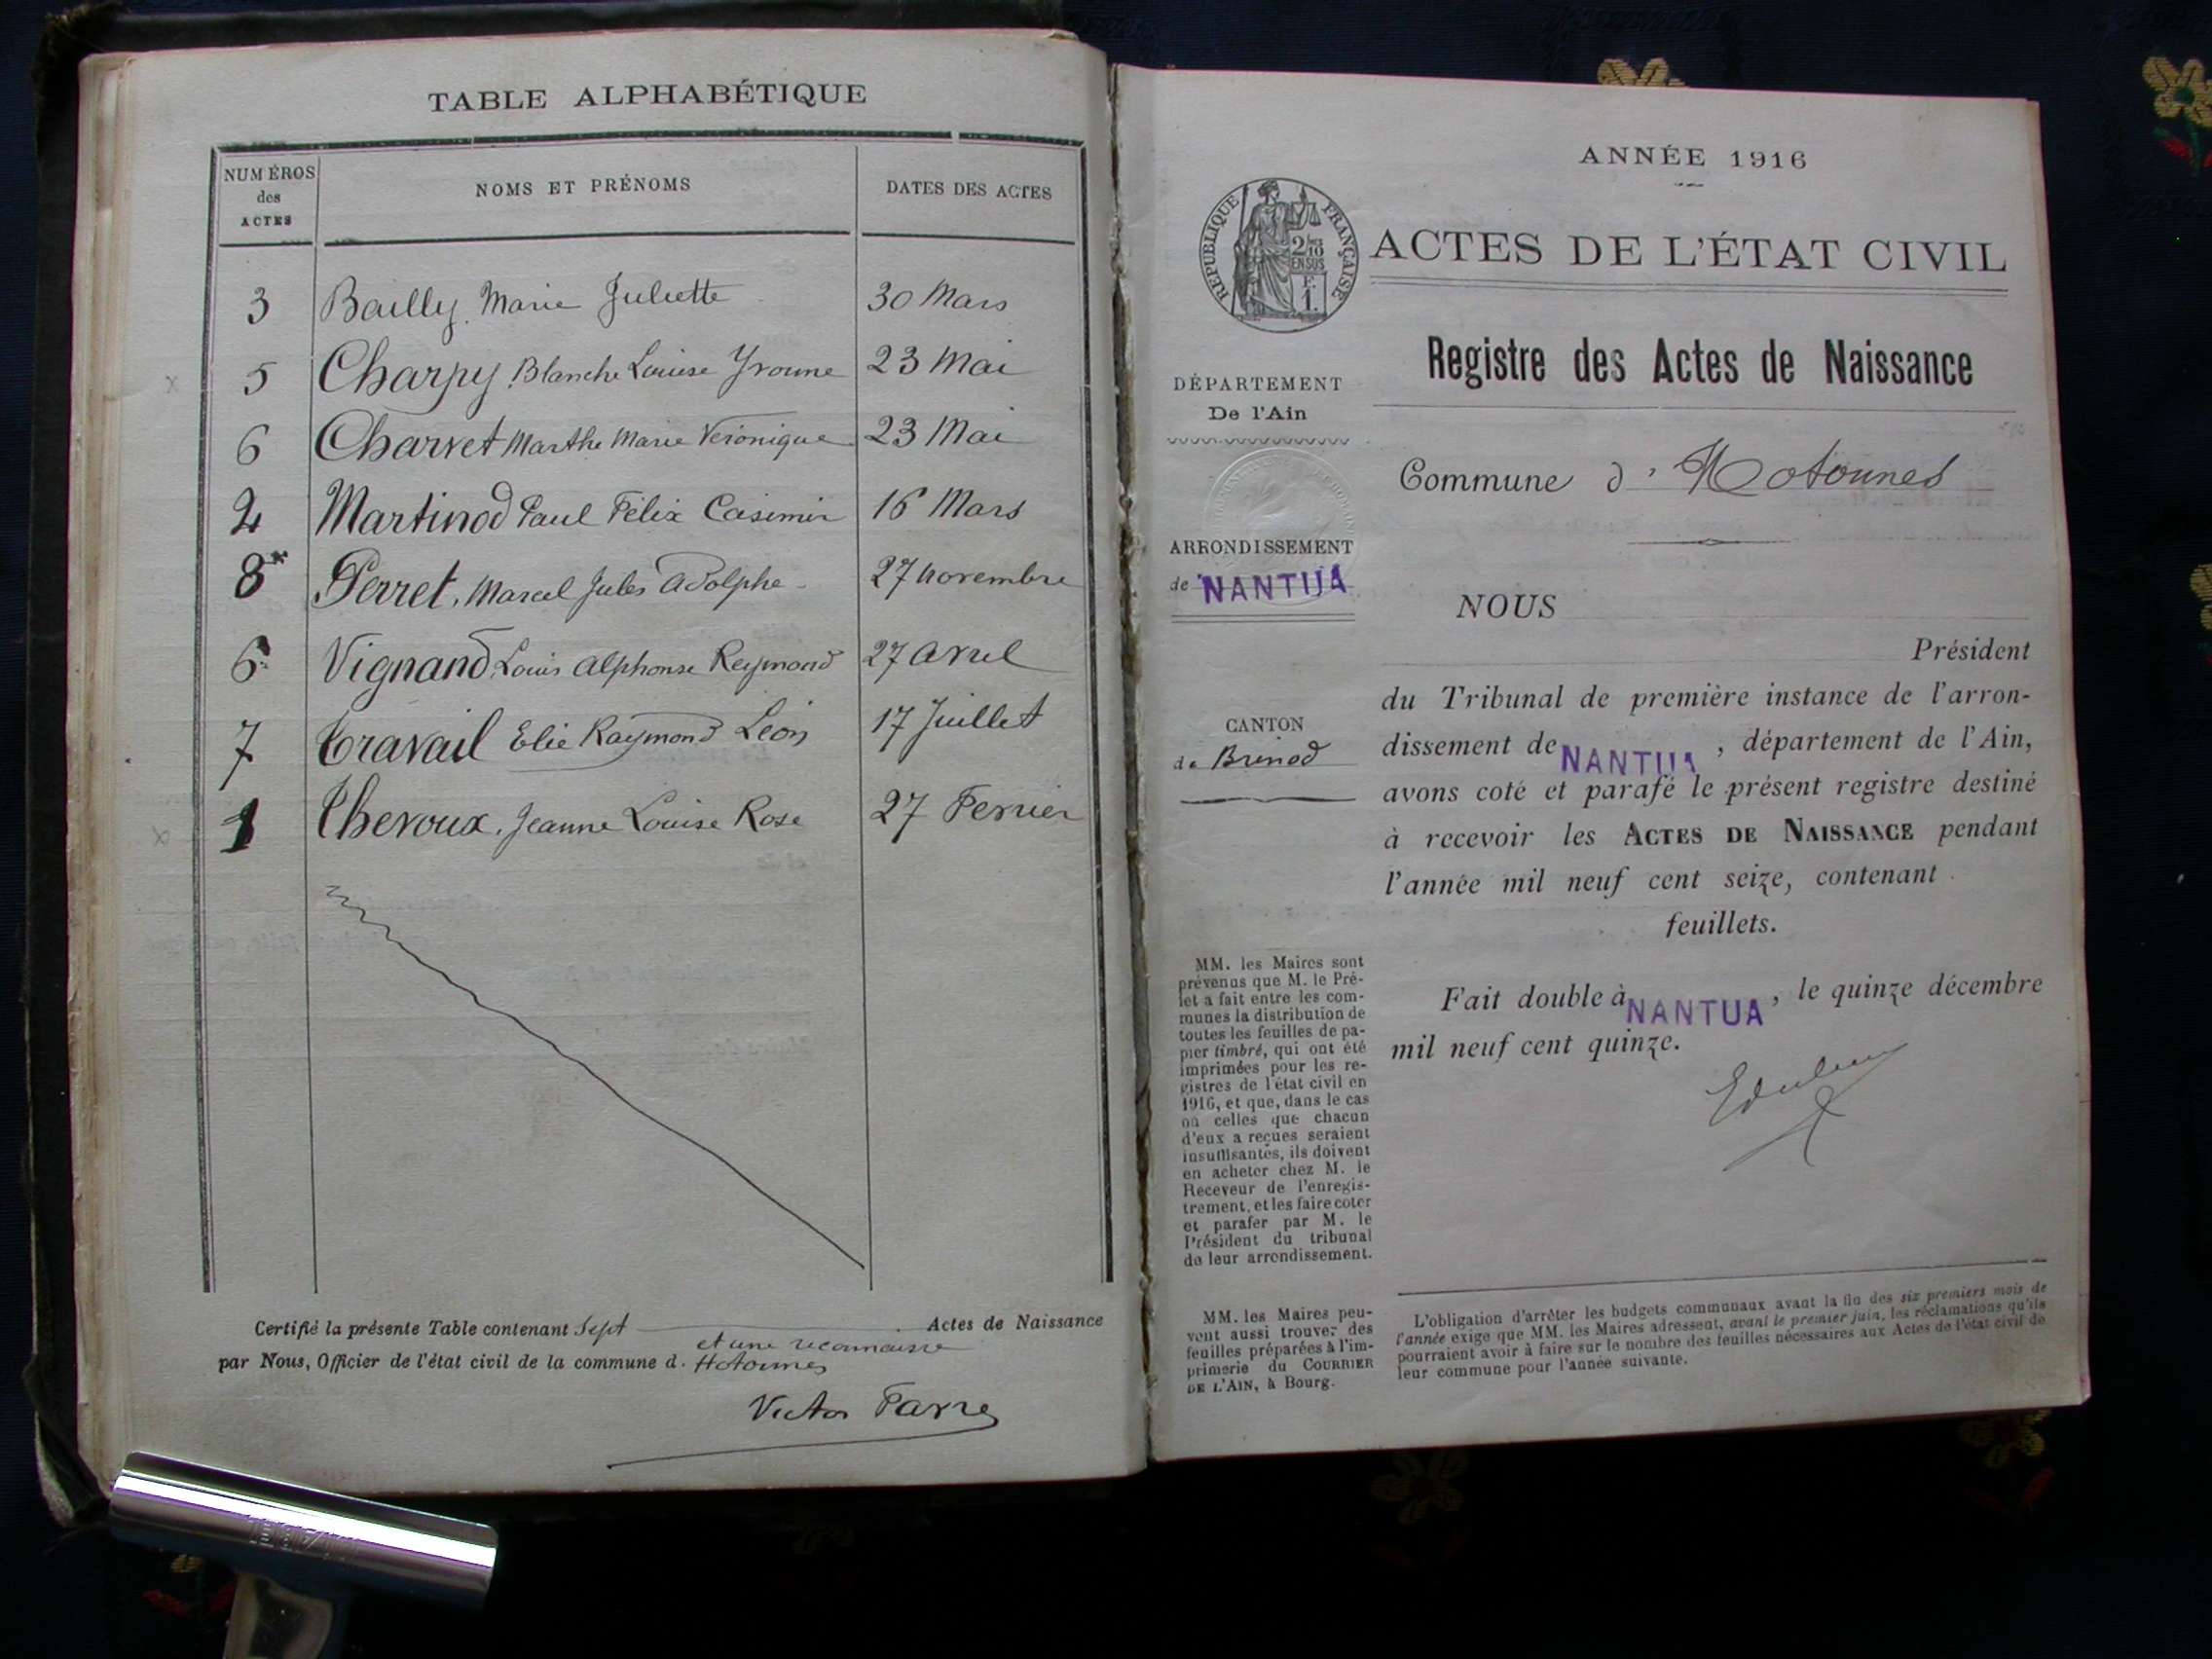 TABLE ALPHABÉTIQUE
NUMÉROS des ACTES
NOMS ET PRÉNOMS
DATES DES ACTES
3 Bailly Marie Juliette 30 Mars
5 Charpy Blanche Louise Yvonne 23 Mai
6 Charvet Marthe Marie Véronique 23 Mai
2 Martinod Paul Félix Casimir 16 Mars
8 Perret, Marcel Jules Adolphe 27 novembre
6 Vignand Louis Alphonse Raymond 27 avril
7 Travail Elie Raymond Léon 17 Juillet
1 Thevoux, Jeanne Louise Rose 27 Fevrier
Certifié la présente Table contenant Sept Actes de Naissance
et une reconnaisse
par Nous, Officier de l'état civil de la commune d. Hotonnes
Victor Favre
ANNÉE 1916
RÉPUBLIQUE FRANÇAISE
2/10
EN SUS
F.
1.
ACTES DE L'ÉTAT CIVIL
Registre des Actes de Naissance
DÉPARTEMENT
De l'Ain
Commune d'Hotonnes
ARRONDISSEMENT
de NANTUA
NOUS
Président
du Tribunal de première instance de l'arron-
dissement de NANTUA, département de l'Ain,
avons coté et parafé le présent registre destiné
à recevoir les ACTES DE NAISSANCE pendant
l'année mil neuf cent seize, contenant
feuillets.
CANTON
de Brenod
Fait double à NANTUA, le quinze décembre
mil neuf cent quinze.
MM. les Maires sont
prévenus que M. le Pré-
fet a fait entre les com-
munes la distribution de
toutes les feuilles de pa-
pier timbré, qui ont été
imprimées pour les re-
gistres de l'état civil en
1916, et que, dans le cas
où celles que chacun
d'eux a reçues seraient
insuffisantes, ils doivent
en acheter chez M. le
Receveur de l'enregis-
trement, et les faire coter
et parafer par M. le
Président du tribunal
de leur arrondissement.
MM. les Maires peu-
vent aussi trouver des
feuilles préparées à l'im-
primerie du COURRIER
DE L'AIN, à Bourg.
L'obligation d'arrêter les budgets communaux avant la fin des six premiers mois de
l'année exige que MM. les Maires adressent, avant le premier juin, les réclamations qu'ils
pourraient avoir à faire sur le nombre des feuilles nécessaires aux Actes de l'état civil de
leur commune pour l'année suivante.